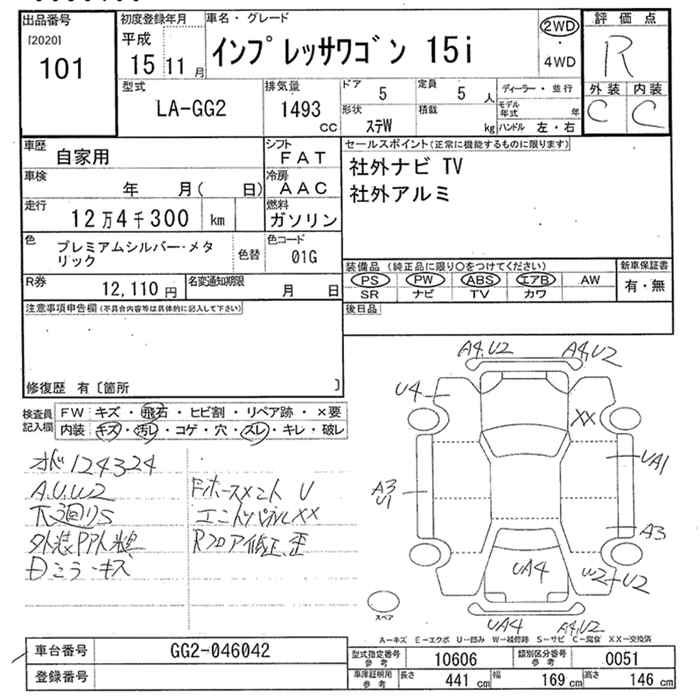 出品番号
[2020]
101
初度登録年月
平成
15 11月
車名・グレード
インプレッサワゴン 15i
2WD
・
4WD
評価点
R
外装 内装
C C
型式
LA-GG2
排気量
1493
cc
ドア
5
定員
5 人
形状
ステW
積載
kg
ディーラー・並行
モデル年式 年
ハンドル 左・右
車歴
自家用
シフト
FAT
車検
年 月( 日)
冷房
AAC
走行
12万4千300 km
燃料
ガソリン
色
プレミアムシルバー・メタリック
色替
色コード
01G
R券
12,110円
名変通知期限
月 日
セールスポイント(正常に機能するものに限ります)
社外ナビ TV
社外アルミ
装備品(純正品に限り○をつけてください)
PS PW ABS エアB AW
SR ナビ TV カワ
新車保証書
有・無
後日品
注意事項申告欄(不具合内容等は具体的に記入して下さい)
修復歴 有〔箇所 〕
検査員記入欄
FW キズ・飛石・ヒビ割・リペア跡・×要
内装 キズ・汚レ・コゲ・穴・スレ・キレ・破レ
オド124324
A.U.W2
下廻りS
外装
Dミラーキズ
U
XX
Rフロア修正、歪
A4,U2
A4,U2
U4
XX
UA1
A3
U1
A3
UA4
W2
U2
UA4
A4,U2
スペア
A−キズ E−エクボ U−凹み W−補修跡 S−サビ C−腐食 XX−交換済
車台番号
GG2-046042
登録番号
型式指定番号参考
10606
類別区分番号参考
0051
車庫証明用参考
長さ 441 cm
幅 169 cm
高さ 146 cm